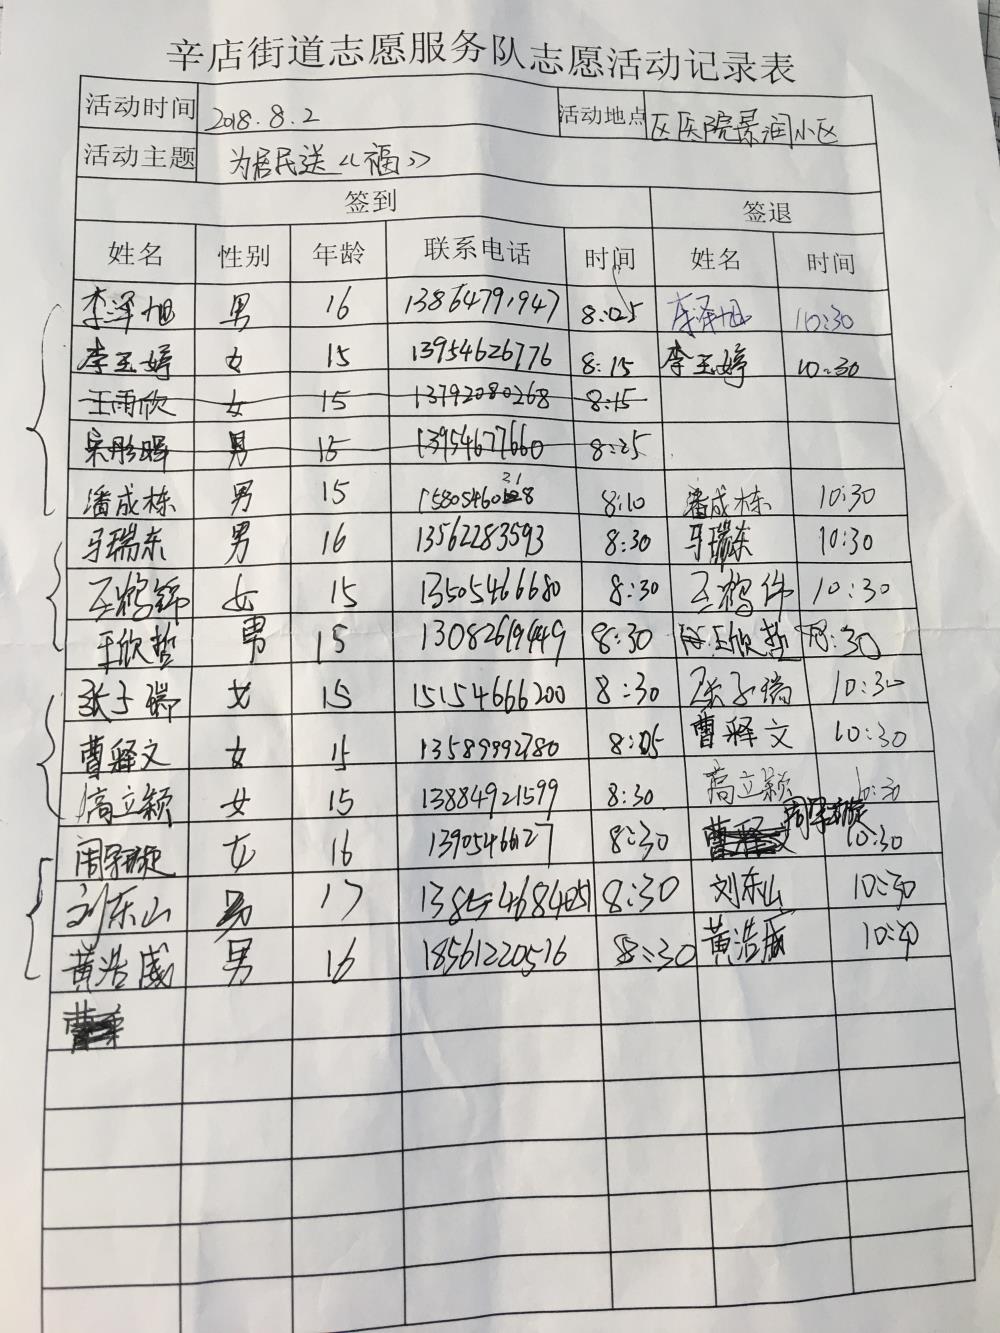 辛店街道志愿服务队志愿活动记录表
活动时间 2018.8.2 活动地点 区医院景润小区
活动主题 为居民送《福》
签到 签退
姓名 性别 年龄 联系电话 时间 姓名 时间
李泽旭 男 16 13864791947 8:05 李泽旭 10:30
李玉婷 女 15 13954626776 8:15 李玉婷 10:30
王雨欣 女 15 13792080268 8:15
男 15 13954677660 8:25
潘成栋 男 15 8:10 潘成栋 10:30
马瑞东 男 16 13562283593 8:30 马瑞东 10:30
女 15 13505466680 8:30 10:30
王欣哲 男 15 13082619449 8:30 王欣哲 :30
张子瑞 女 15 15154666200 8:30 张子瑞 10:30
曹释文 女 15 13589992780 8:05 曹释文 10:30
高立颖 女 15 13884921599 8:30 高立颖 10:30
女 16 1390546627 8:30 10:30
刘东山 男 17 8:30 刘东山 10:30
黄浩威 男 16 18561220516 8:30 黄浩威